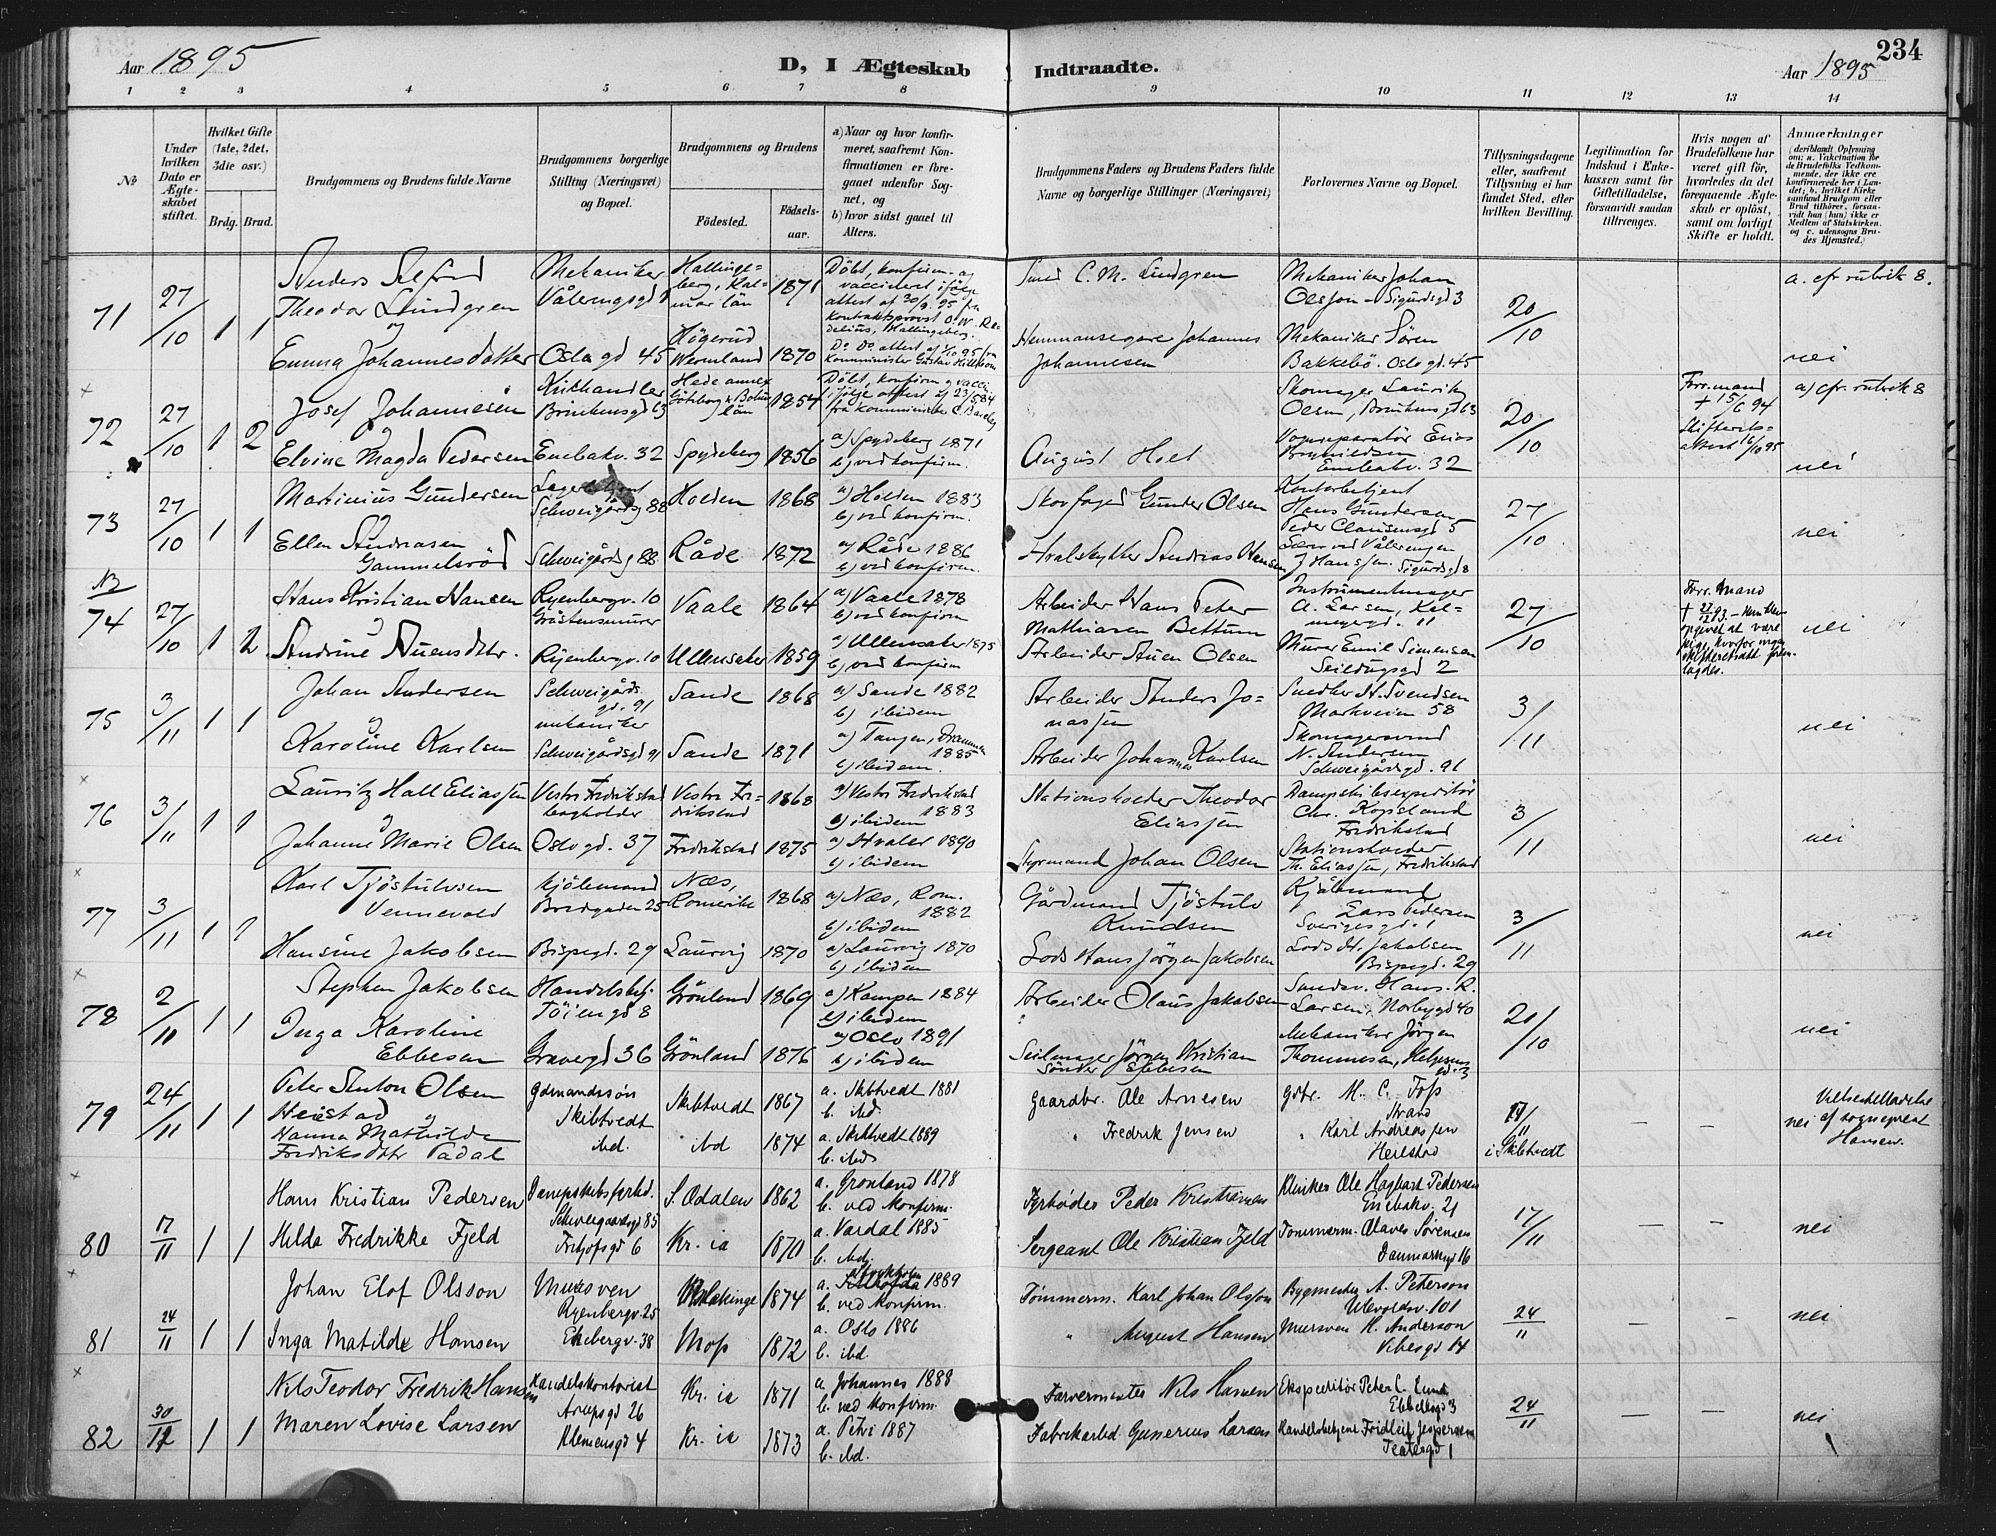 234
Aar 1895
D, I Ægteskab Indtraadte.
Aar 1895
1 2 3 4 5 6 7 8 9 10 11 12 13 14
No
Under hvilken Dato er Ægteskabet stiftet.
Hvilket Gifte (1ste, 2det, 3die osv.)
Brdg. Brud.
Brudgommens og Brudens fulde Navne
Brudgommens borgerlige Stilling (Næringsvei) og Bopæl.
Brudgommens og Brudens
Födested. Födselsaar.
a) Naar og hvor konfirmeret, saafremt Konfirmationen er foregaaet udenfor Sognet, og
b) hvor sidst gaaet til Alters.
Brudgommens Faders og Brudens Faders fulde Navne og borgerlige Stillinger (Næringsvei)
Forlovernes Navne og Bopæl.
Tillysningsdagene eller, saafremt Tillysning ei har fundet Sted, efter hvilken Bevilling.
Legitimation for Indskud i Enkekassen samt för Giftetilladelse, forsaavidt saadan tiltrænges.
Hvis nogen af Brudefolkene har været gift för, hvorledes da det foregaaende Ægteskab er oplöst, samt om lovligt Skifte er holdt.
Anmærkninger (deriblandt Oplysning om: a. Vakcination for de Brudefolks Vedkommende, der ikke ere konfirmerede her i Landet; b. hvilket Kirkesamfund Brudgom eller Brud tilhörer, forsaavidt hun (hun) ikke er Medlem af Statskirken, og c. udensogns Brudes Hjemsted.)
71 27/10 1 1
Anders Alfred Theodor Lundgren Mekaniker Våleringsgd Hallingeberg, Kalmar län 1871
Döbt, konfirm. og vaccineret ifølge attest af 30/9 95 fra kontraktsprovst O. W. Redelius, Hallingeberg.
Smed C. M. Lindgren Mekaniker Johan Olsson - Sigurdsgd 3 20/10 a. cfr rubrik 8.
og
Emma Johannesdatter Oslogd 45 Högerud Wermland 1870
Hemmansegare Johannes Johannesen Mekaniker Sören Bakkebö. Oslogd. 45 nei
72 27/10 1 2
Josef Johannesen Brinkensgd 63 Hede annex Göteborg & Bohus län 1854
Skomager Lauritz Olsen, Brinkensgd 63 20/10 Forr. mand + 15/6 94 a) cfr. rubrik 8
Elvine Magda Pedersen Enebakv. 32 Spydeberg 1856 a) Spydeberg 1871 b) ved konfirm.
August Holt Enebakv. 32 nei
73 27/10 1 1
Martinius Gundersen Schweigårdsg 88 Holden 1868 a) Holden 1883 b) ved konfirm.
Skovfoged Gunder Olsen Kontorbetjent Hans Gundersen Peder Clausensgd 5 27/10
Ellen Andreasen Gammelsröd Schweigårdsg 88 Råde 1872 a) Råde 1886 b) ved konfirm.
Hvalskytter Andreas Hansen Lærer ved Vålerengen J. Hanssen. Sigurdsgd 8 nei
74 27/10 1 2
Hans Kristian Hansen Ryenbergv. 10 Gråstensmurer Vaale 1864 a) Vaale 1878 b) ved konfirm
Arbeider Hans Peter Mathiasen Bettum Instrumentmager A. Larsen 27/10 Forr. Mand
Andrine Auensdtr. Ryenbergv. 10 Ullensaker 1859 a) Ullensaker 1875 b) ved konfirm
Arbeider Auen Olsen Murer Emil Simensen Seildugsgd 2 nei
75 3/11 1 1
Johan Andersen Schweigårdsgd. 91 mekaniker Sande 1868 a) Sande 1882 b) ibidem
Arbeider Anders Jonassen Snedker A. Svendsen Markveien 58 3/11
Karoline Karlsen Schweigårdsgd 91 Sande 1871 a) Tangen, Drammen 1885 b) ibidem.
Arbeider Johannes Karlsen Skomagersvend N. Andersen Schweigårdsgd. 91 nei
76 3/11 1 1
Lauritz Hall Eliassen Vestre Fredrikstad bogholder Vestre Fredrikstad 1868 a) Vestre Fredrikstad 1883 b) ibidem
Stationsholder Theodor Eliassen Dampskibsexpeditör Chr. Kopsland Fredrikstad 3/11
Johanne Marie Olsen Oslogd. 37 Fredrikstad 1875 a) Hvaler 1890 b) ibidem
Styrmand Johan Olsen Stationsholder Th. Eliassen, Fredrikstad nei
77 3/11 1 1
Karl Tjöstulvsen Vennevold Kjölemand Bredgaden 25 Næs, Romerike 1868 a) Næs, Rom. 1882 b) ibidem
Gårdmand Tjöstulv Knudsen Kjölemand Lars Pedersen Sverigesgd. 1 3/11
Hansine Jakobsen Bispegd. 29 Laurvig 1870 a) Laurvig 1870 b) ibidem
Lods Hans Jörgen Jakobsen Lods H. Jakobsen Bispegd. 29 nei
78 2/11 1 1
Stephen Jakobsen Handelsbetj. Töiengd 8 Grönland 1869 a) Kampen 1884 b) ibidem
Arbeider Olaus Jakobsen Hans R. Larsen, Norbygd 40 20/10
Inga Karoline Ebbesen Gravergd 36 Grönland 1876 a) Oslo 1891 b) ibidem
Seilmager Jörgen Kristian Sönder Ebbesen Mekaniker Jörgen Thommesen, nei
79 24/11 1 1
Peter Anton Olsen Heistad Gdmandssön Skibtvedt Skibtvedt 1867 a. Skibtvedt 1881 b. ibd.
Gaardbr. Ole Arnesen gdbr. M. C. Foss Strand 17/11 i Skibtvedt
og
Hanna Mathilde Fredriksdtr Aadal ibd. ibd 1874 a. Skibtvedt 1889 b. ibd.
" Fredrik Jensen " Karl Andreassen Heilstad — — nei Vielsestilladelse af sogneprest Hansen.
80 17/11 1 1
Hans Kristian Pedersen Schweigaardsgd 85 S. Odalen 1862 a. Grönland 1878 b. ved konfirm.
Fyrböder Peder Kristiansen Klinker Ole Hagbart Pedersen Enebakv. 21 17/11 — —
Hilda Fredrikke Fjeld Fritjofsgd 6 Kr.ia 1870 a. Vardal 1885 b. ibd.
Sergeant Ole Kristian Fjeld Tommerm. Olaves Sörensen Danmarksgd 16 nei
81 24/11 1 1
Johan Elof Olsson Mursven Ryenbergv. 25 Blekinge 1874 1889 b. ved konfirm.
Tömmerm. Karl Johan Olsson Bygmester A. Peterson Ullevoldsv. 101 24/11 — —
Inga Matilde Hansen Ekebergv. 38 Moss 1872 a. Oslo 1886 b. ibd.
" August Hansen Mursven K. Anderson Vibesgd 14 nei
82 30/12 1 1
Nils Teodor Fredrik Hansen Handelskontorist Arupsgd 26 Kr.ia 1871 a. Johannes 1888 b. ved konfirm.
Farvermester Nils Hansen Ekspeditör Peter C. Lund Ebbellsgd 3 24/11 — —
Maren Lovise Larsen Klemensgd 4 Kr.ia 1873 a. Petri 1887 b. ibd.
Fabrikarbd Gunerius Larsen Handelsbetjent Fridleif Jespersen Teatergd 1 nei